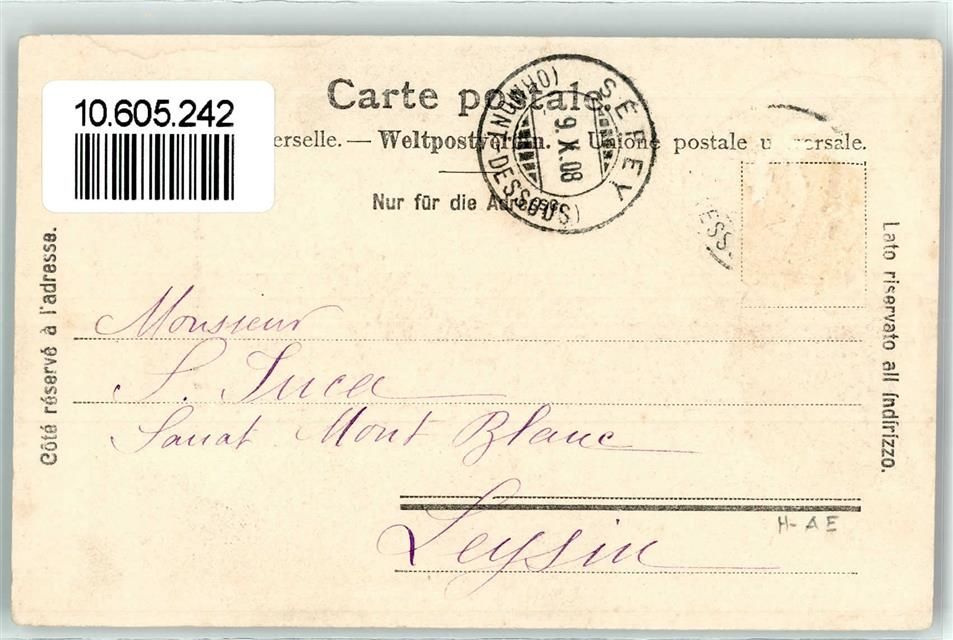 10.605.242
Carte postale.
erselle. — Weltpostverein. — Unione postale universale.
Nur für die Adresse
SÉPEY
(ORMONT DESSOUS)
9.X.08
ESS
Côté réservé à l'adresse.
Lato riservato all indirizzo.
Monsieur
S. Luca
Sanat Mont Blanc
Leysin
H-AE